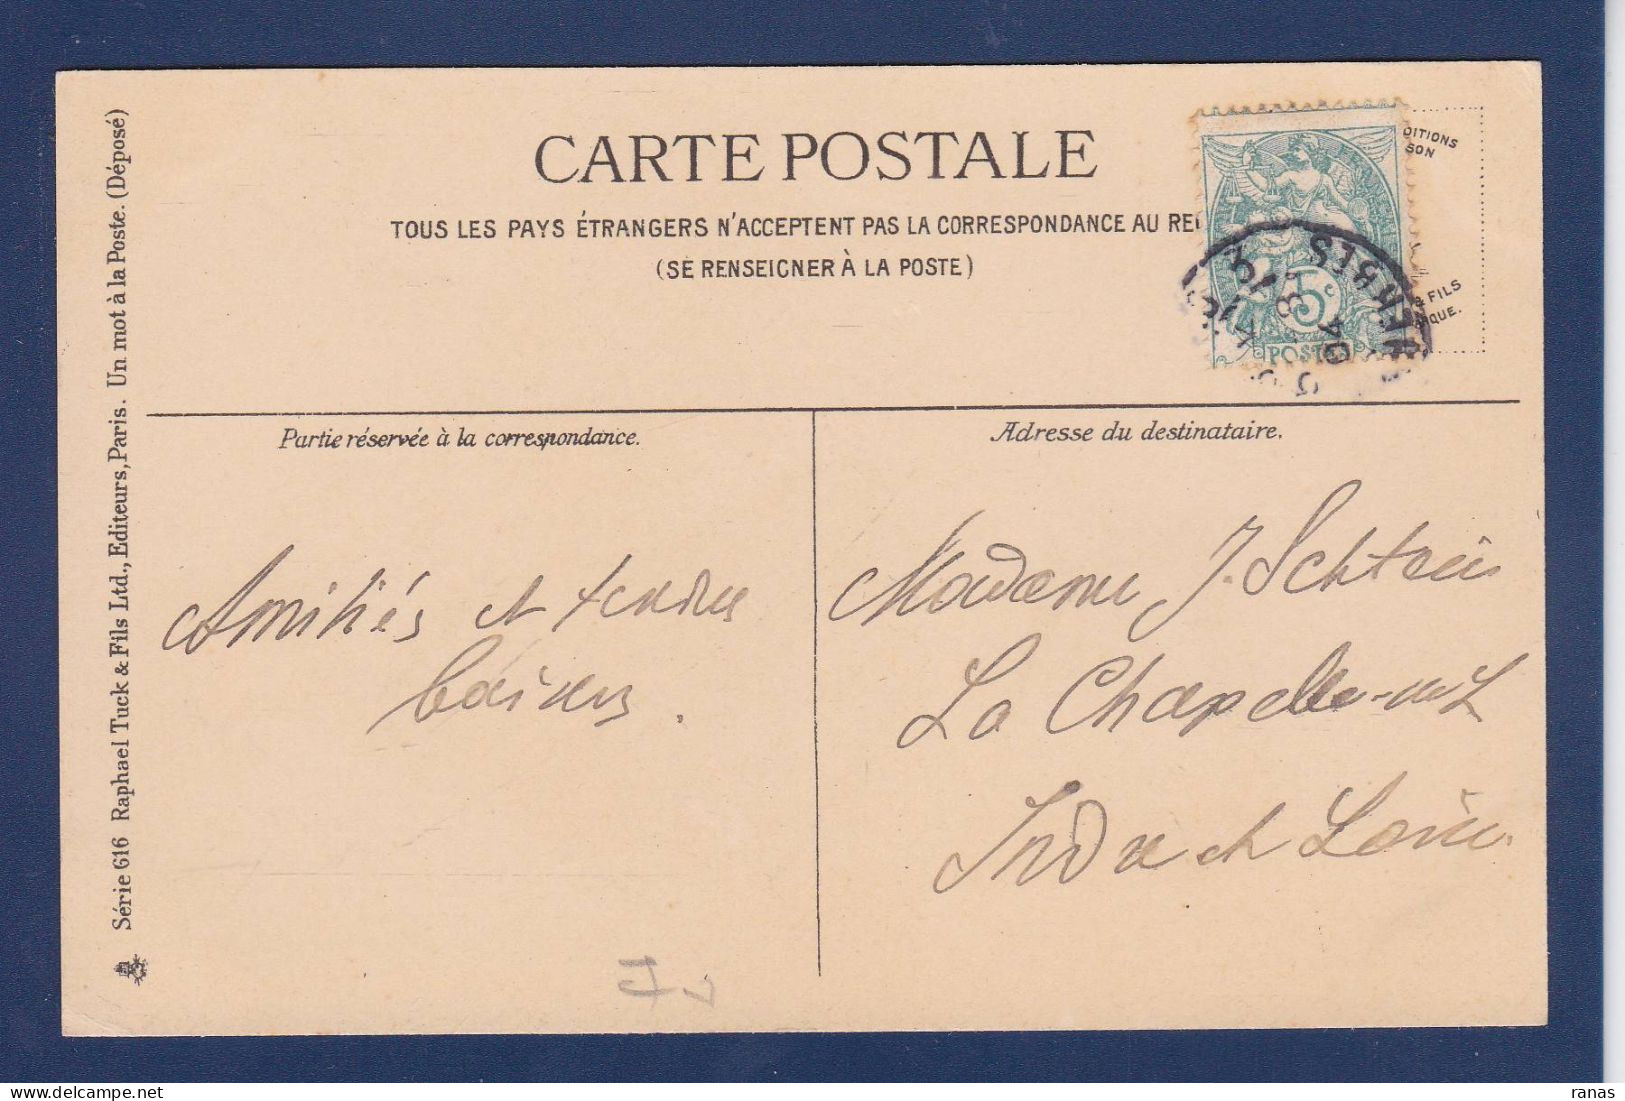 CARTE POSTALE
TOUS LES PAYS ÉTRANGERS N'ACCEPTENT PAS LA CORRESPONDANCE AU
(SE RENSEIGNER À LA POSTE)
DITIONS
SON
& FILS
QUE.
5c
POSTES
04
Série 616 Raphael Tuck & Fils Ltd., Editeurs, Paris. Un mot à la Poste. (Déposé)
Partie réservée à la correspondance.
Amitiés et tendres
baisers.
Adresse du destinataire.
Madame J.
La Chapelle-
Indre et Loire
ranas